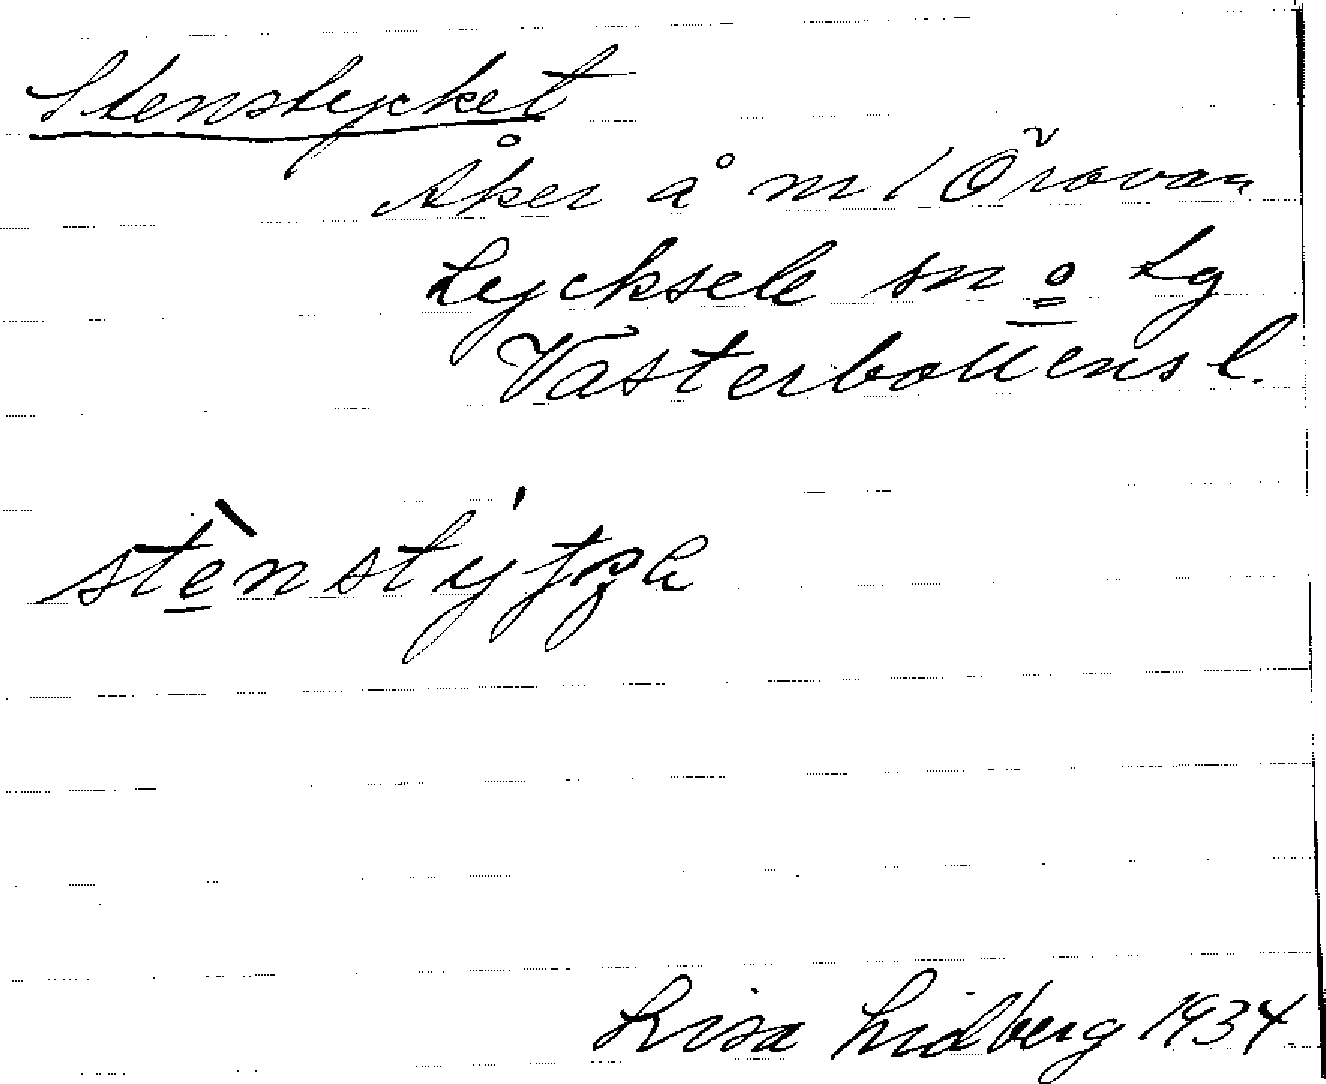 Stenstycket
Åker å m / Örovan
Lycksele sn o Lg
Västerbottens l.
Lisa Lidberg 1934